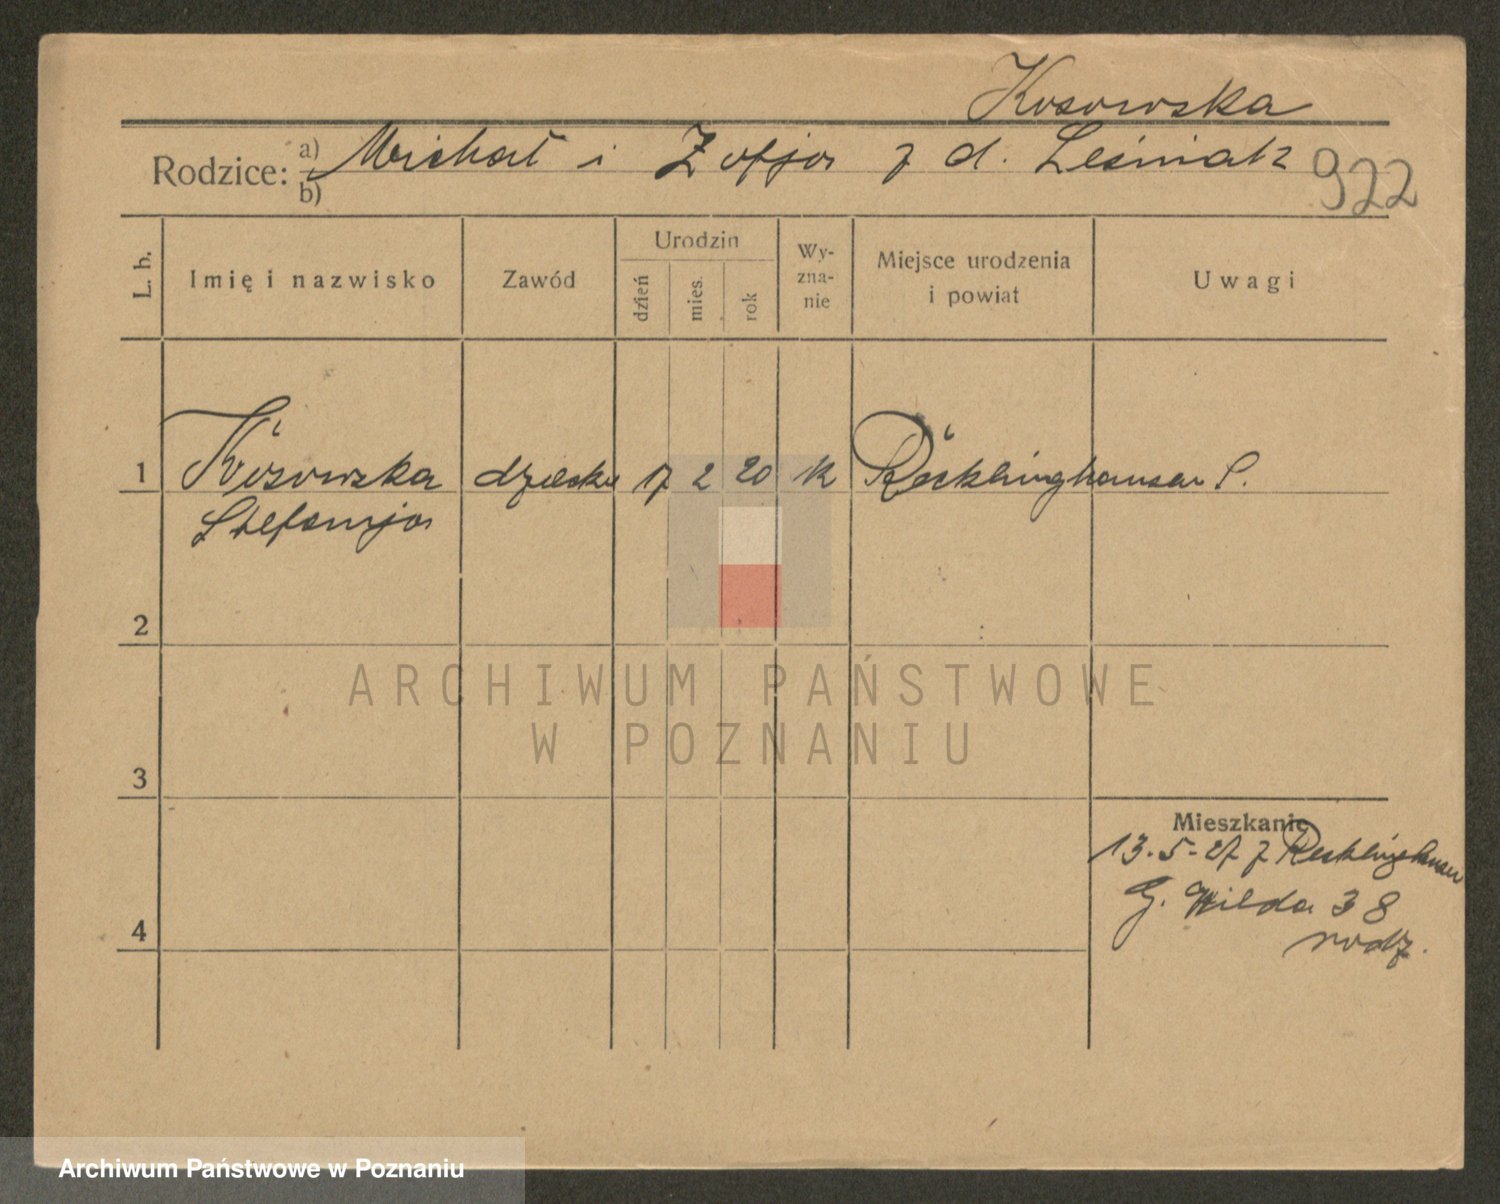 Kosowska
Rodzice: a) Michał i Zofja z d. Leśniak 922
b)
L. b. Imię i nazwisko Zawód Urodzin dzień mies. rok Wy-zna-nie Miejsce urodzenia i powiat Uwagi
1 Kosowska dziecko 17 2 20 k Recklinghausen
Stefanja
2
3
4
Mieszkanie
13.5-27 z Recklinghausen
G. Wilda 38
rodz.
ARCHIWUM PAŃSTWOWE
W POZNANIU
Archiwum Państwowe w Poznaniu